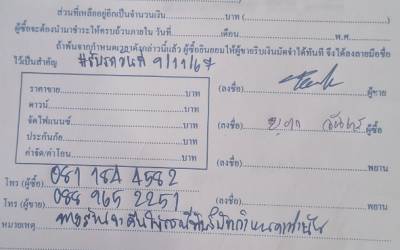 ส่วนที่เหลืออยู่อีกเป็นจำนวนเงิน..........บาท (..........)
ผู้ซื้อจะต้องนำมาชำระให้ครบถ้วนภายใน วันที่..........เดือน..........พ.ศ. ..........
ถ้าพ้นจากกำหนดเวลาดังกล่าวนี้แล้ว ผู้ซื้อยินยอมให้ผู้ขายริบเงินมัดจำได้ทันที จึงได้ลงลายมือชื่อ
ไว้เป็นสำคัญ #รับรถวันที่ 9/11/67
ราคาขาย..........บาท
ดาวน์..........บาท
จัดไฟแนนซ์..........บาท
ประกันภัย..........บาท
ค่าจัด/ค่าโอน..........บาท
(ลงชื่อ) ..........ผู้ขาย
(ลงชื่อ) ..........ผู้ซื้อ
(ลงชื่อ)..........พยาน
(ลงชื่อ)..........พยาน
โทร (ผู้ซื้อ) 081 184 4582
โทร (ผู้ขาย) 088 965 2251
หมายเหตุ